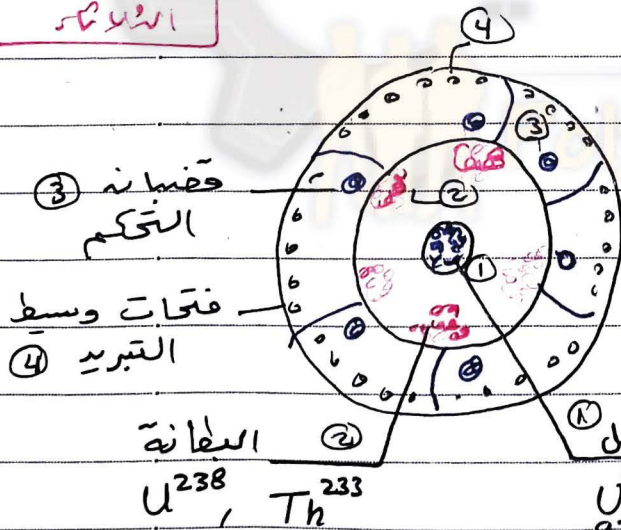 ④
③
قضبان ③
التحكم
②
①
فتحات وسيط
التبريد ④
① ل
البطانة ②
U²³⁸ , Th²³³
U